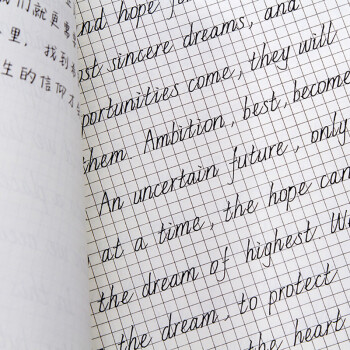 们就更需
里，找到
生的信仰
and hope
st sincere dreams, and
portunities come, they will
them. Ambition, best, become
An uncertain future, only
at a time, the hope can
the dream of highest. W
the dream, to protect
the heart